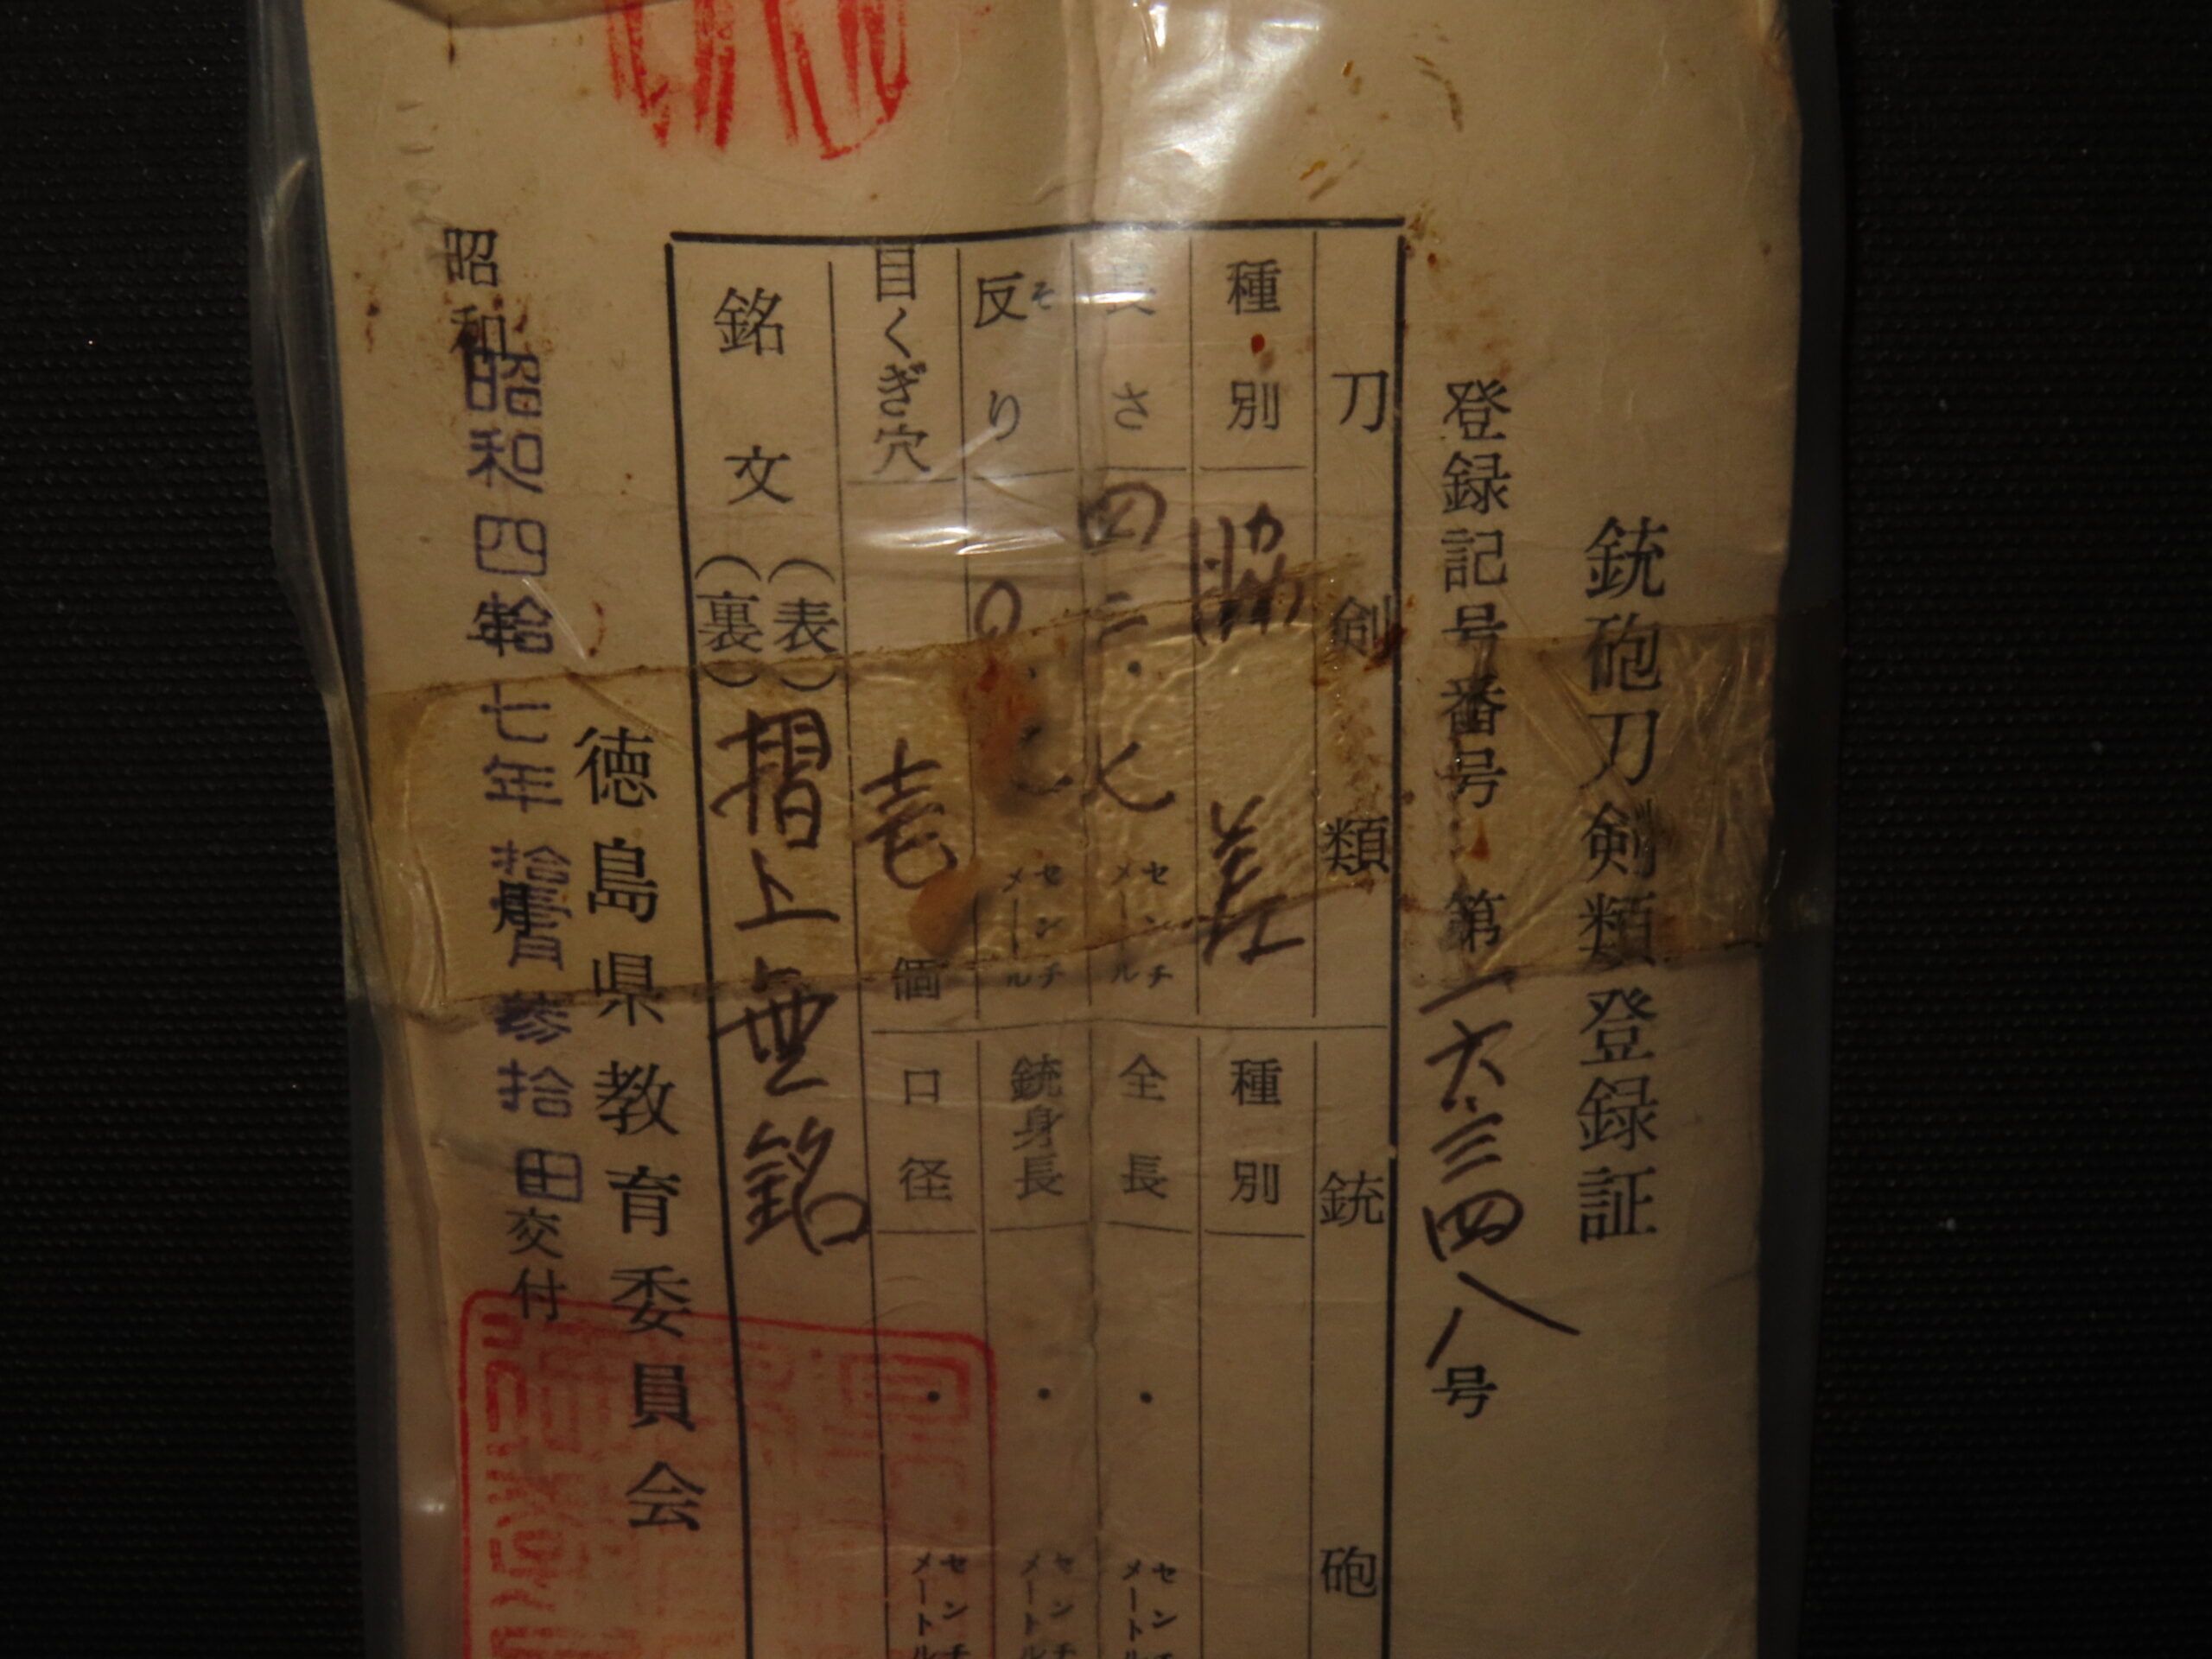 銃砲刀剣類登録証
登録記号番号 第一六三四八号
刀剣類
種別 脇差
長さ 四二・七 センチメートル
反り そ 〇・ センチメートル
目くぎ穴 壱 個
銘文 (表) (裏) 摺上無銘
銃砲
種別
全長 ・ センチメートル
銃身長 ・ センチメートル
口径 ・ センチメートル
徳島県教育委員会
昭和 年 月 日交付
昭和四拾七年拾壹月参拾日